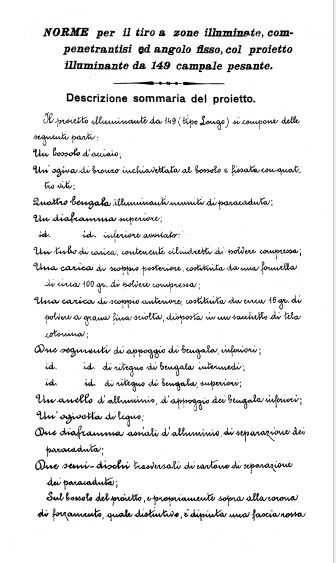 NORME per il tiro a zone illuminate, com-
penetrantisi ed angolo fisso, col proietto
illuminante da 149 campale pesante.
Descrizione sommaria del proietto.
Il proietto illuminante da 149 (tipo Longo) si compone delle
seguenti parti:
Un bossolo d'acciaio;
Un'ogiva di bronzo inchiavettata al bossolo e fissata con quat-
tro viti;
Quattro bengala illuminanti muniti di paracaduta;
Un diaframma superiore;
id. id. inferiore avvitato:
Un tubo di carica, contenente cilindretti di polvere compressa;
Una carica di scoppio posteriore, costituita da una formella
di circa 100 gr. di polvere compressa;
Una carica di scoppio anteriore, costituita da circa 15 gr. di
polvere a grana fina sciolta, disposta in un sacchetto di tela
cotonina;
Due segmenti di appoggio di bengala, inferiori;
id. id. di ritegno di bengala intermedi;
id. id. di ritegno di bengala superiori;
Un anello d'alluminio, d'appoggio dei bengala inferiori;
Un'ogivetta di legno;
Due diaframma assiali d'alluminio, di separazione dei
paracaduta;
Due semi-dischi trasversali di cartone di separazione
dei paracaduta;
Sul bossolo del proietto, e propriamente sopra alla corona
di forzamento, quale distintivo, è dipinta una fascia rossa